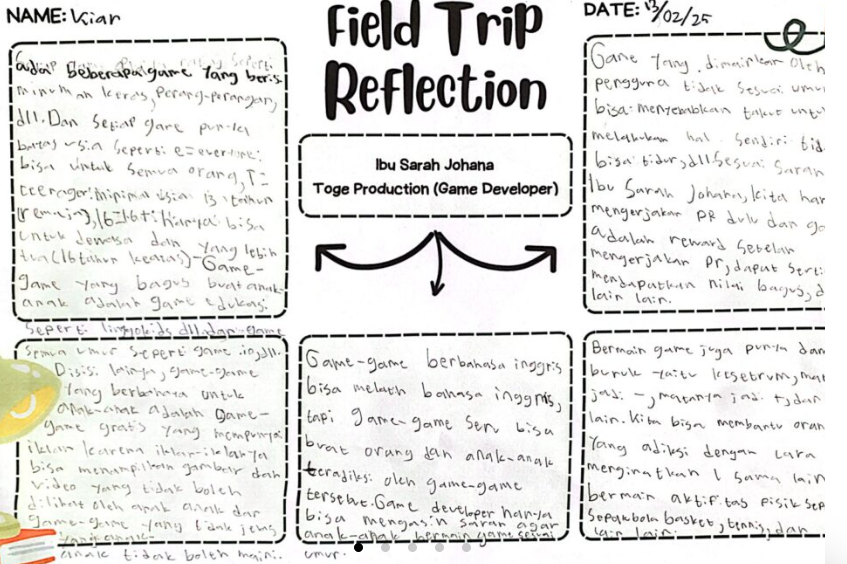 NAME: Kiar
Field Trip
Reflection
DATE: 13/02/25
Ibu Sarah Johana
Toge Production (Game Developer)
adal beberapa game yang beris
minuman keras, perang-perangan,
dll. Dan setiap game punya
batas usia seperti e=everyone:
bisa untuk semua orang, T=
teenager: minimal usia 13 tahun
(remaja), 16=16+: hanya bisa
untuk dewasa dan yang lebih
tua (16 tahun keatas)-Game-
game yang bagus buat anak-
anak adalah game edukasi
seperti lingokids dll, dan game
semua umur seperti game .io, dll.
Disisi lainya, game-game
yang berbahaya untuk
anak-anak adalah game-
game gratis yang mempunyai
iklan karena iklan-iklanya
bisa menampilkan gambar dan
video yang tidak boleh
dilihat oleh anak anak dan
game-game yang tidak jelas
yang anak-
anak tidak boleh maini.
Game-game berbahasa inggris
bisa melatih bahasa inggris,
tapi game-game seru bisa
buat orang dan anak-anak
teradiksi oleh game-game
tersebut. Game developer hanya
bisa mengasih saran agar
anak-anak bermain game sesuai
umur.
Game yang dimainkan oleh
pengguna tidak sesuai umur
bisa menyebabkan takut untu
melakukan hal sendiri tid
bisa tidur, dll Sesuai saran
Ibu Sarah Johana, kita har
mengerjakan PR dulu dan ga
adalah reward setelah
mengerjakan pr, dapat serti
mendapatkan nilai bagus, d
lain lain.
Bermain game juga punya dam
buruk yaitu kesetrum, mat
jadi -, matanya jadi +, dan
lain. Kita bisa membantu oran
yang adiksi dengan cara
menginatkan 1 sama lain
bermain aktifitas pisik sep
sepakbola basket, tennis, dan
lain lain.